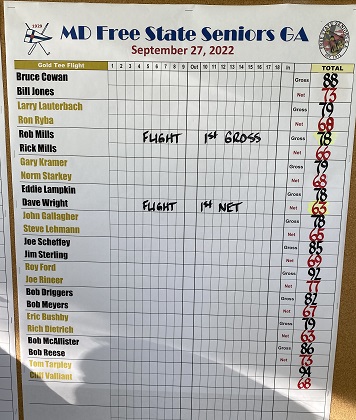 1929
MD Free State Seniors GA
September 27, 2022
Gold Tee Flight 1 2 3 4 5 6 7 8 9 Out 10 11 12 13 14 15 16 17 18 in TOTAL
Bruce Cowan Gross 88
Bill Jones Net 73
Larry Lauterbach Gross 79
Ron Ryba Net 68
Rob Mills FLIGHT 1st GROSS Gross 78
Rick Mills Net 66
Gary Kramer Gross 79
Norm Starkey Net 68
Eddie Lampkin Gross 78
Dave Wright FLIGHT 1st NET Net 63
John Gallagher Gross 78
Steve Lehmann Net 68
Joe Scheffey Gross 85
Jim Sterling Net 69
Roy Ford Gross 92
Joe Rineer Net 77
Bob Driggers Gross 82
Bob Meyers Net 67
Eric Bushby Gross 79
Rich Dietrich Net 63
Bob McAllister Gross 86
Bob Reese Net 73
Tom Tarpley 94
Cliff Valliant 68